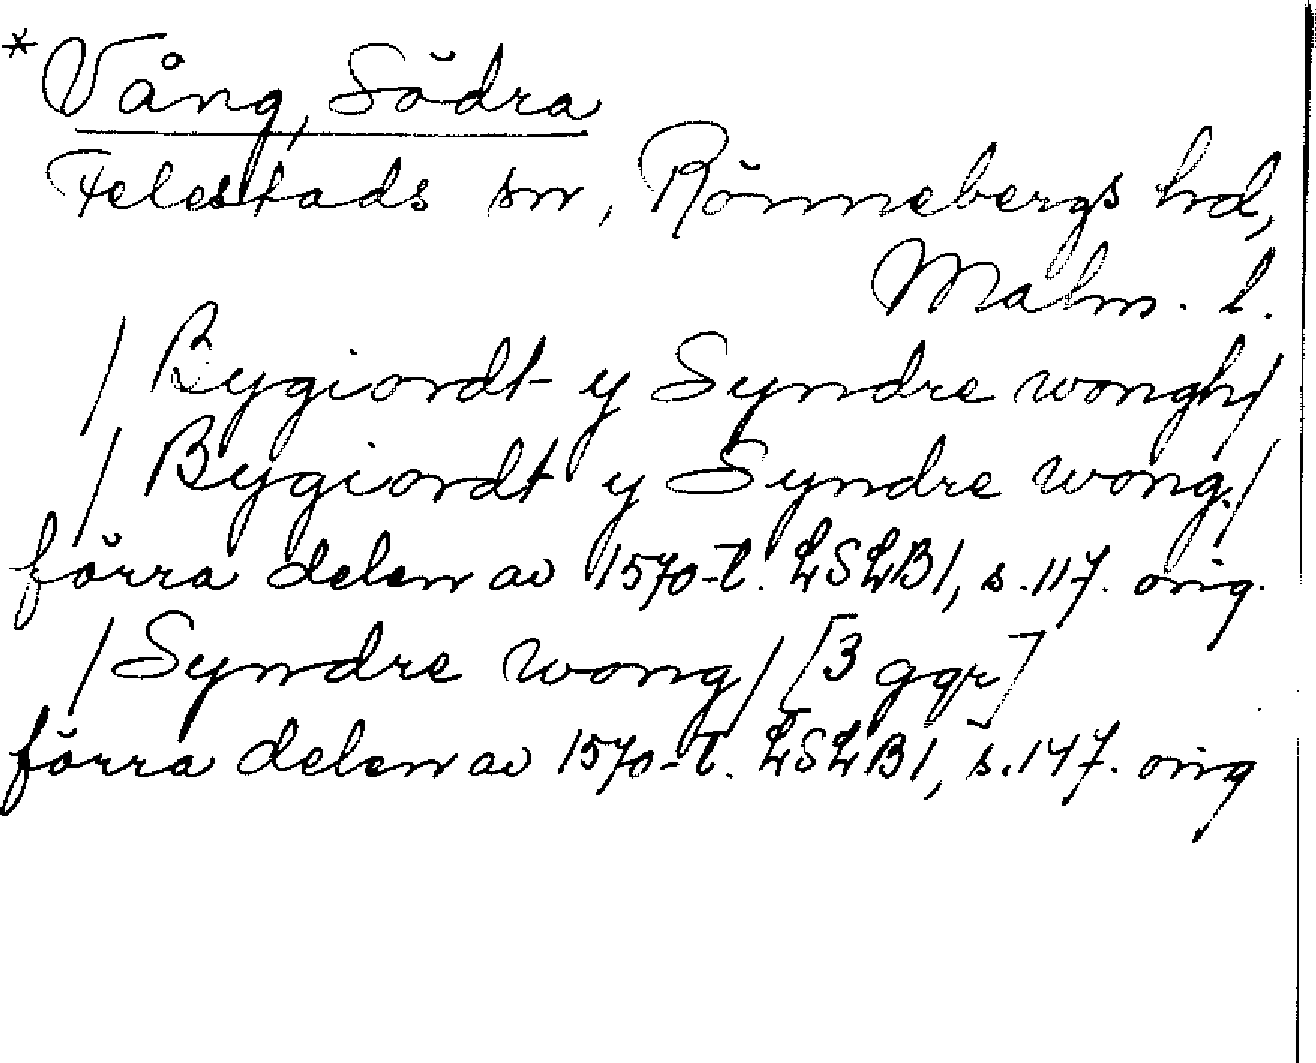 *Vång, Södra
Felestads sn, Rönnebergs hd,
Malm. l.
/Bygiordt y Syndre wongh/
/Bygiordt y Syndre wong./
förra delen av 1570-t. LSLB1, s.117. orig.
/Syndre wong/ [3 ggr]
förra delen av 1570-t. LSLB1, s.147. orig